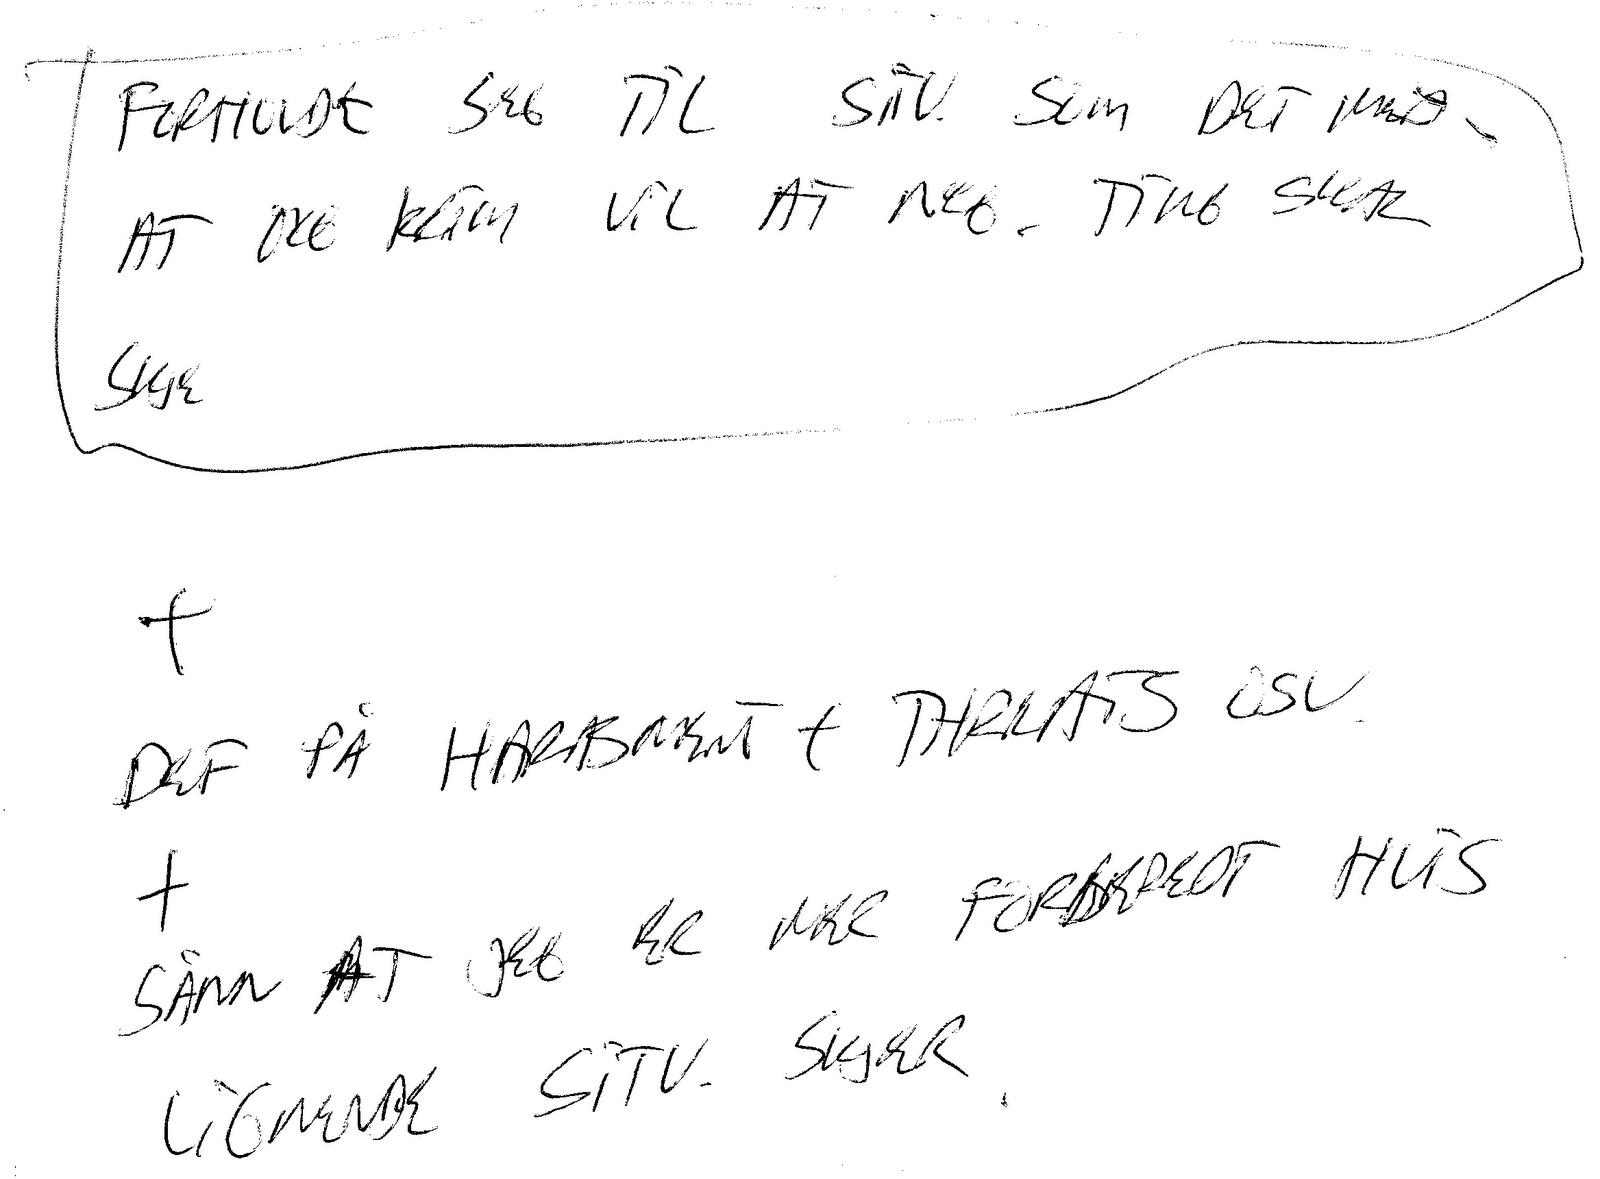 FORHOLDE SEG TIL SITU. SOM DET MED
AT IKKE KRIM VIL AT NEG. TING SKAL
SKJE
+
DEF PÅ HARASMENT + THREATS OSV.
+
SÅNN AT JEG ER MER FORBEREDT HVIS
LIGNENDE SITU. SKJER.